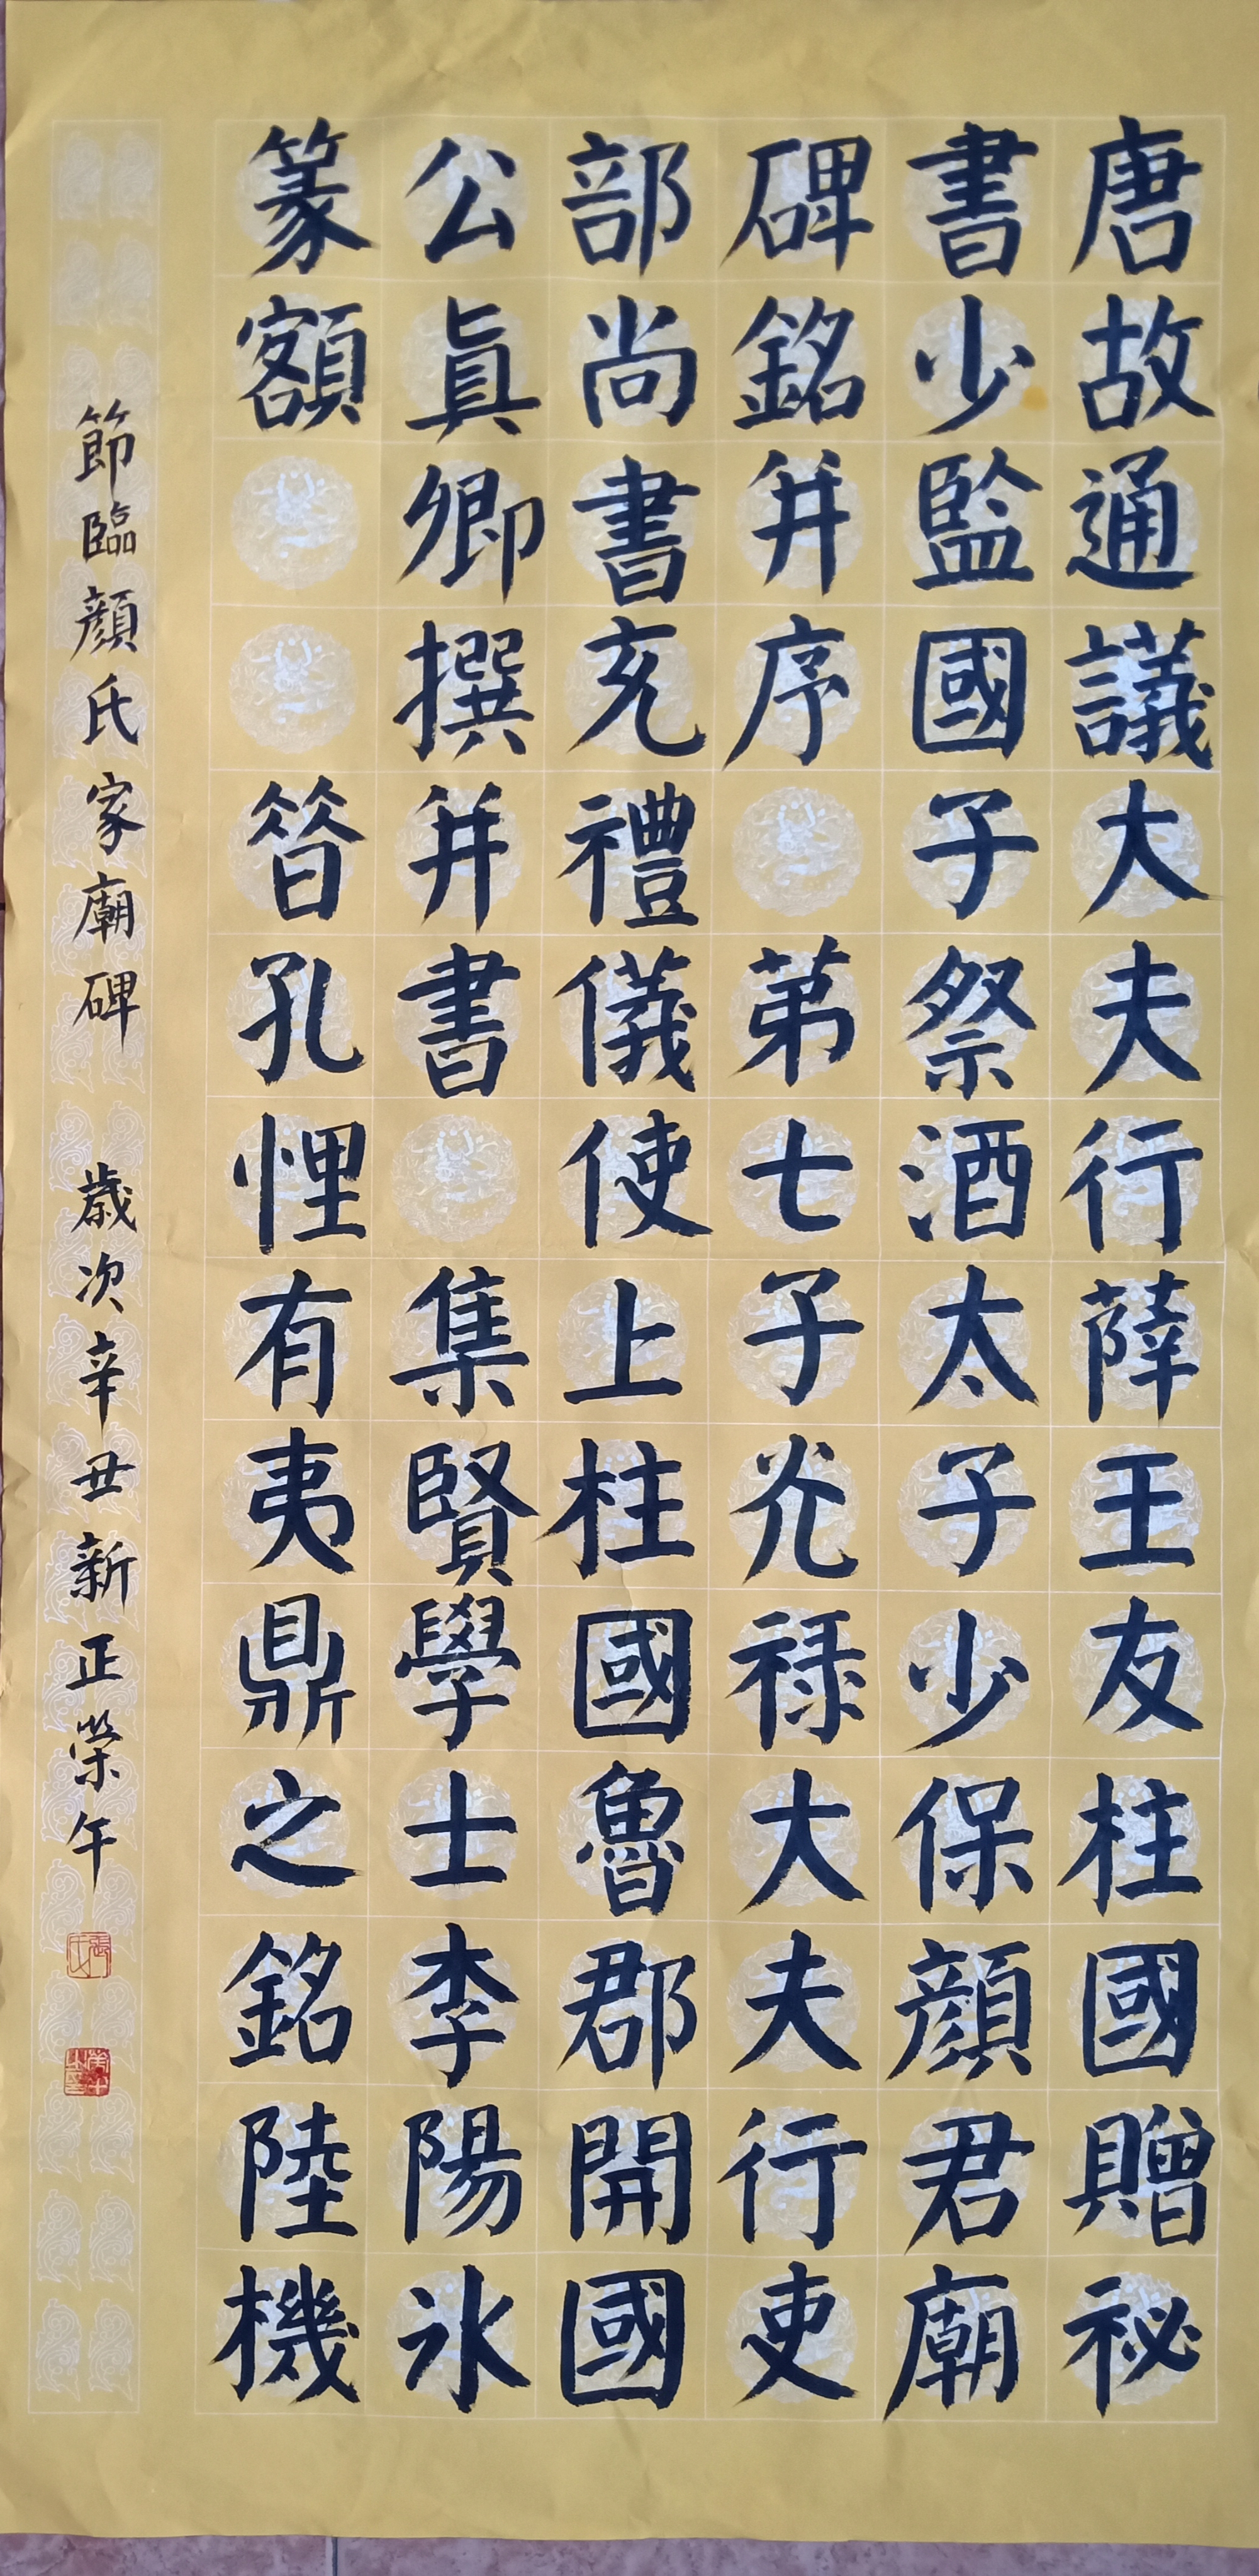 唐故通議大夫行薛王友柱國贈祕
書少監國子祭酒太子少保顏君廟
碑銘并序 第七子光禄大夫行吏
部尚書充禮儀使上柱國魯郡開國
公眞卿撰并書 集賢學士李陽冰
篆額 昝孔悝有夷鼎之銘陸機
節臨顏氏家廟碑 歲次辛丑新正榮午